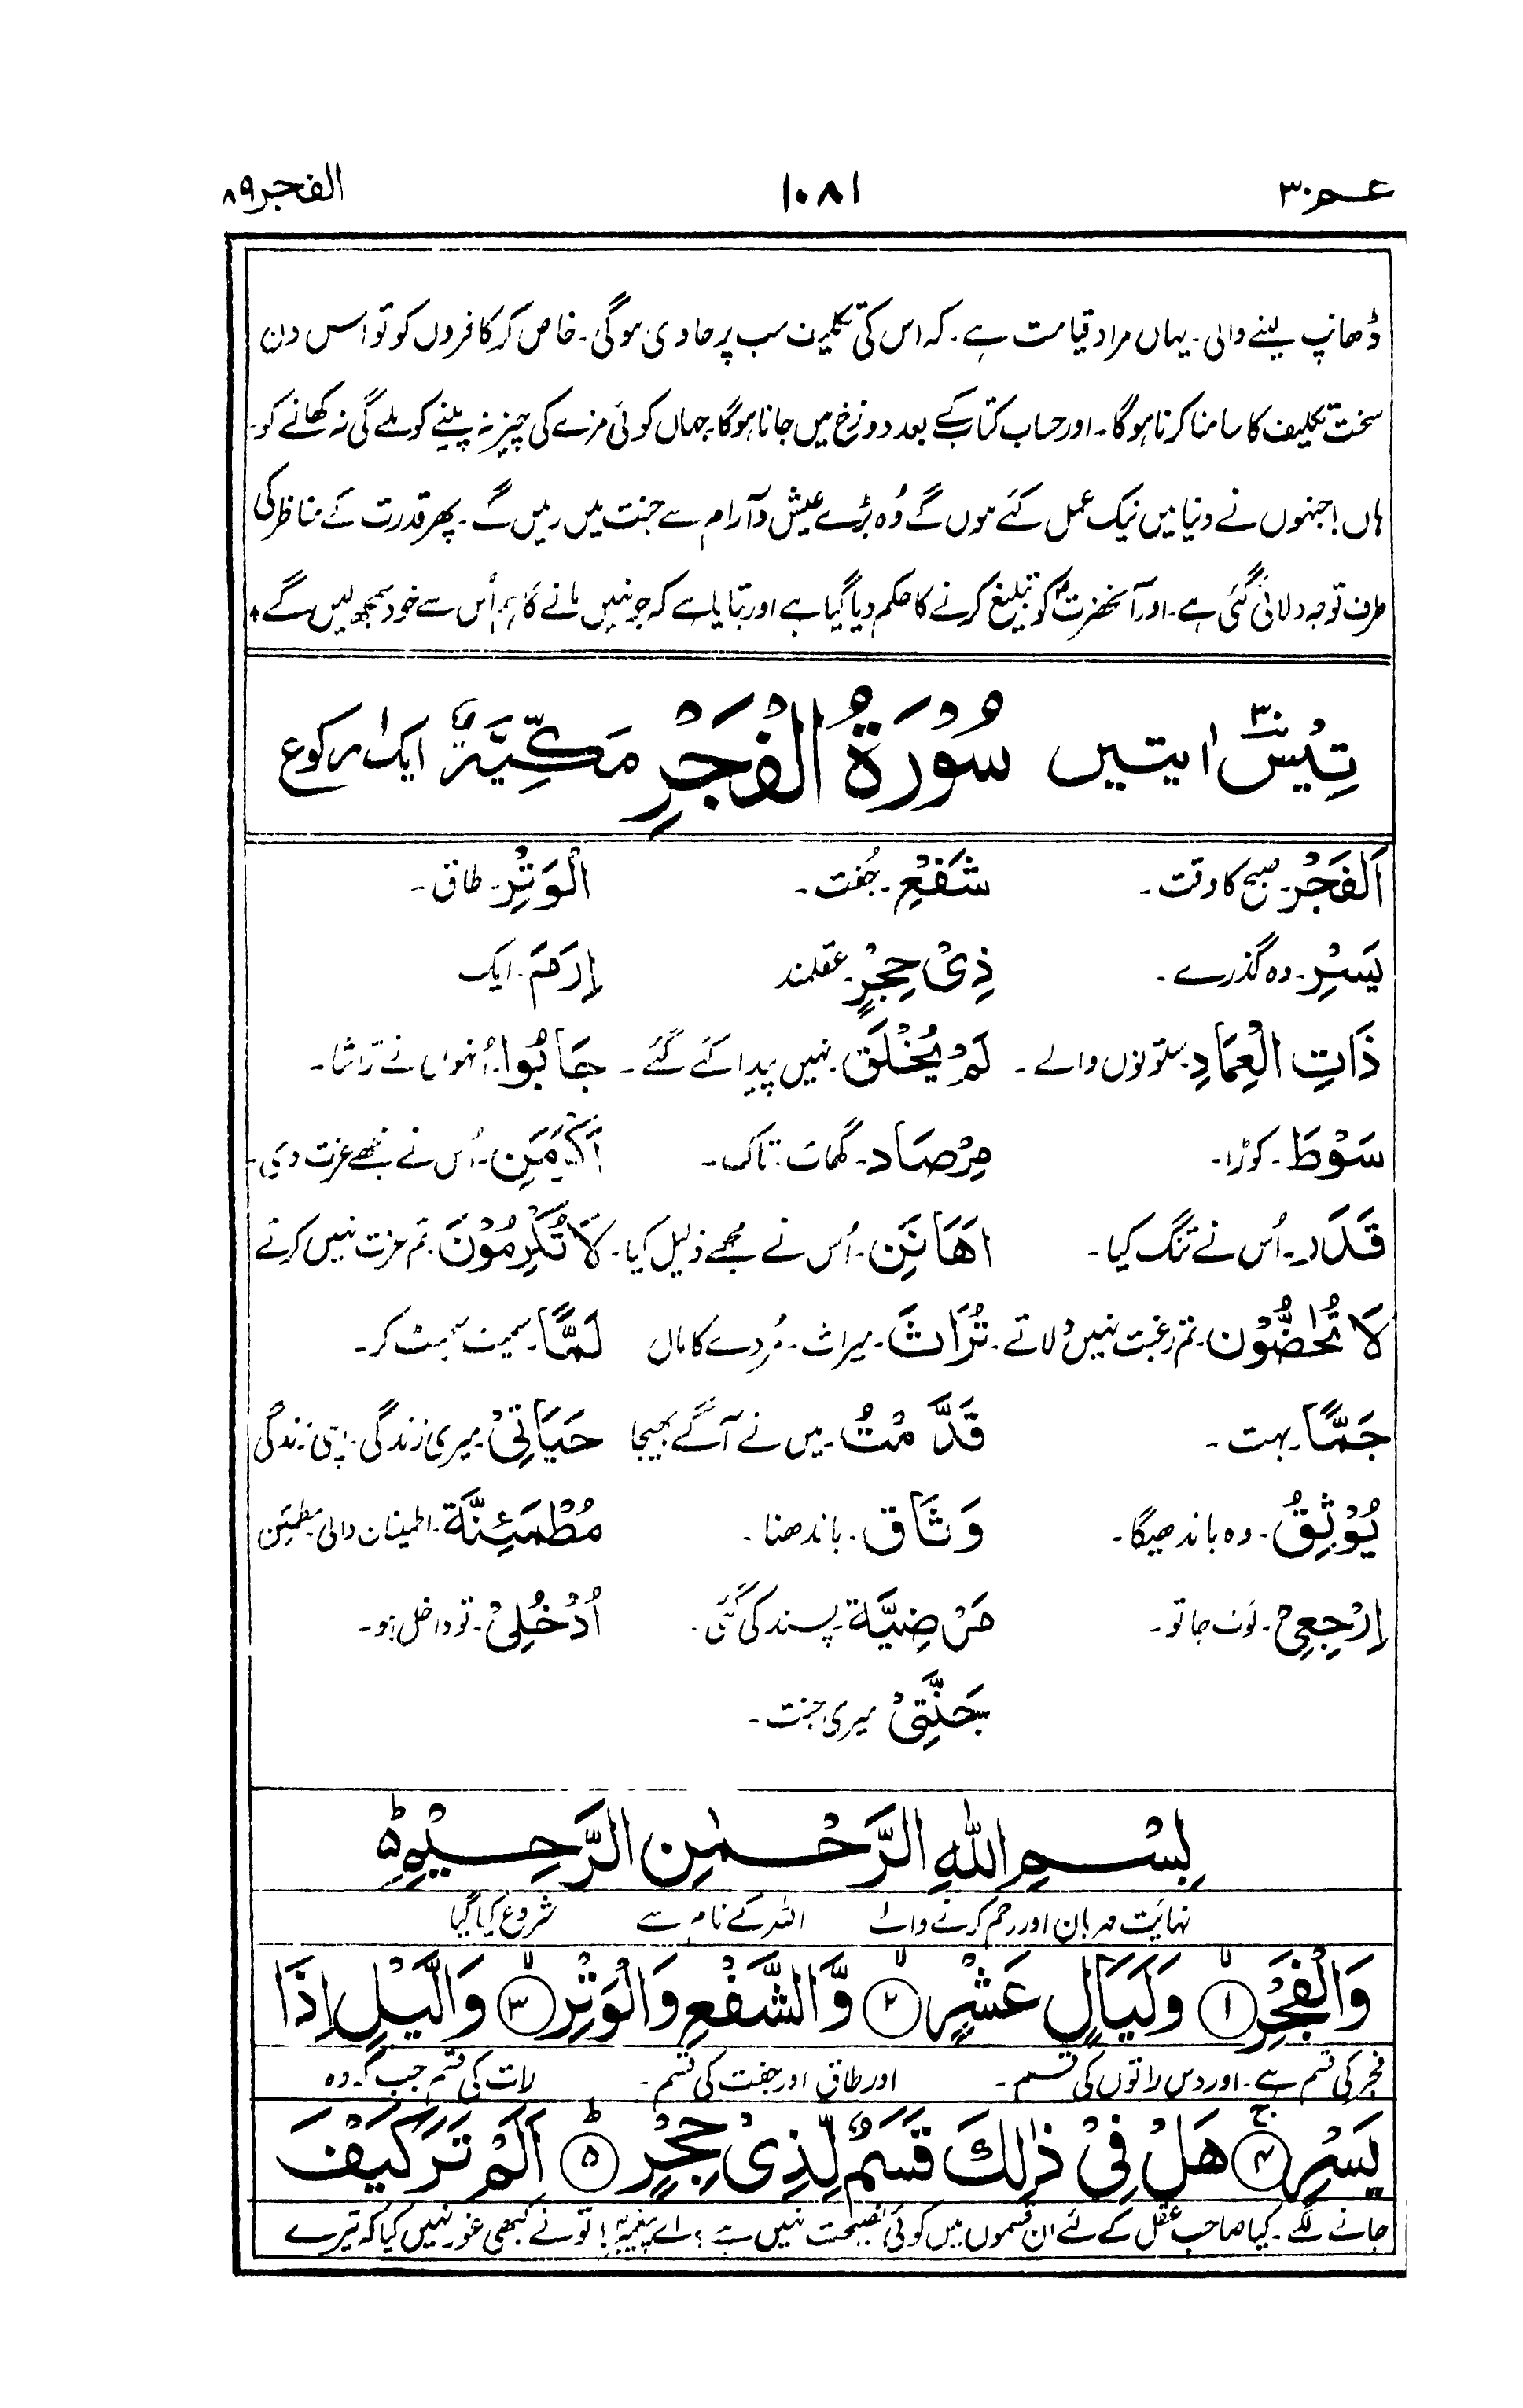 عم ۳۰ ۱۰۸۱ الفجر ۸۹
ڈھانپ لینے والی۔ یہاں مراد قیامت ہے۔ کہ اس کی تکلیف سب پر حاوی ہوگی۔ خاص کر کافروں کو تو اس دن
سخت تکلیف کا سامنا کرنا ہوگا۔ اور حساب کتاب کے بعد دوزخ میں جانا ہوگا۔ جہاں کوئی مزے کی چیز نہ پینے کو ملے گی نہ کھانے کو۔
ہاں! جنہوں نے دنیا میں نیک عمل کئے ہوں گے وُہ بڑے عیش و آرام سے جنت میں رہیں گے۔ پھر قدرت کے مناظر کی
طرف توجہ دلائی گئی ہے۔ اور آنحضرتؐ کو تبلیغ کرنے کا حکم دیا گیا ہے اور بتایا ہے کہ جو نہیں مانے گا ہم اُس سے خود سمجھ لیں گے +
تِیْسؔ ۳۰ اٰیتیں سُوْرَۃُ الْفَجْرِ مَکِّیَّۃٌ ایک ۱ رکوع
اَلْفَجْرِ۔ صبح کا وقت۔ شَفْعِ۔ جُفت۔ اَلْوَتْرِ۔ طاق۔
یَسْرِ۔ وہ گذرے۔ ذِیْ حِجْرٍ۔ عقلمند اِرَمَ۔ ایک
ذَاتِ الْعِمَادِ۔ ستونوں والے۔ لَمْ یُخْلَقْ۔ نہیں پیدا کئے گئے۔ جَابُوا۔ اُنہوں نے تراشا۔
سَوْطَ۔ کوڑا۔ مِرْصَاد۔ گھات۔ تاک۔ اَکْرَمَنِ۔ اُس نے مجھے عزت دی۔
قَدَرَ۔ اُس نے تنگ کیا۔ اَھَانَنِ۔ اُس نے مجھے ذلیل کیا۔ لَا تُکْرِمُوْنَ۔ تم عزت نہیں کرتے
لَا تُحٰضُّوْن۔ تم رغبت نہیں دلاتے۔ تُرَاثَ۔ میراث۔ مُردے کا مال لَمًّا۔ سمیٹ سمیٹ کر۔
جَمًّا۔ بہت۔ قَدَّمْتُ۔ میں نے آگے بھیجا حَیَاتِیْ۔ میری زندگی۔ اپنی زندگی
یُوْثِقُ۔ وہ باندھیگا۔ وَثَاق۔ باندھنا۔ مُطْمَئِنَّۃ۔ اطمینان والی۔ مطمئن
اِرْجِعِیْ۔ لوٹ جا تو۔ مَرْضِیَّۃ۔ پسند کی گئی۔ اُدْخُلِیْ۔ تو داخل ہو۔
جَنَّتِیْ میری جنت۔
بِسْمِ اللّٰہِ الرَّحْمٰنِ الرَّحِیْمِ ۵ط
نہائت مہربان اور رحم کرنے والے اللہ کے نام سے شروع کیا گیا
وَالْفَجْرِ ۱ۙ وَلَیَالٍ عَشْرٍ ۲ۙ وَّالشَّفْعِ وَالْوَتْرِ ۳ۙ وَالَّیْلِ اِذَا
فجر کی قسم ہے۔ اور دس راتوں کی قسم۔ اور طاق اور جفت کی قسم۔ رات کی قسم جب کہ وہ
یَسْرِ ۴ۚ ھَلْ فِیْ ذٰلِکَ قَسَمٌ لِّذِیْ حِجْرٍ ۵ؕ اَلَمْ تَرَ کَیْفَ
جانے لگے۔ کیا صاحب عقل کے لئے ان قسموں میں کوئی نصیحت نہیں ہے؟ اے پیغمبرؐ! تو نے کبھی غور نہیں کیا کہ تیرے